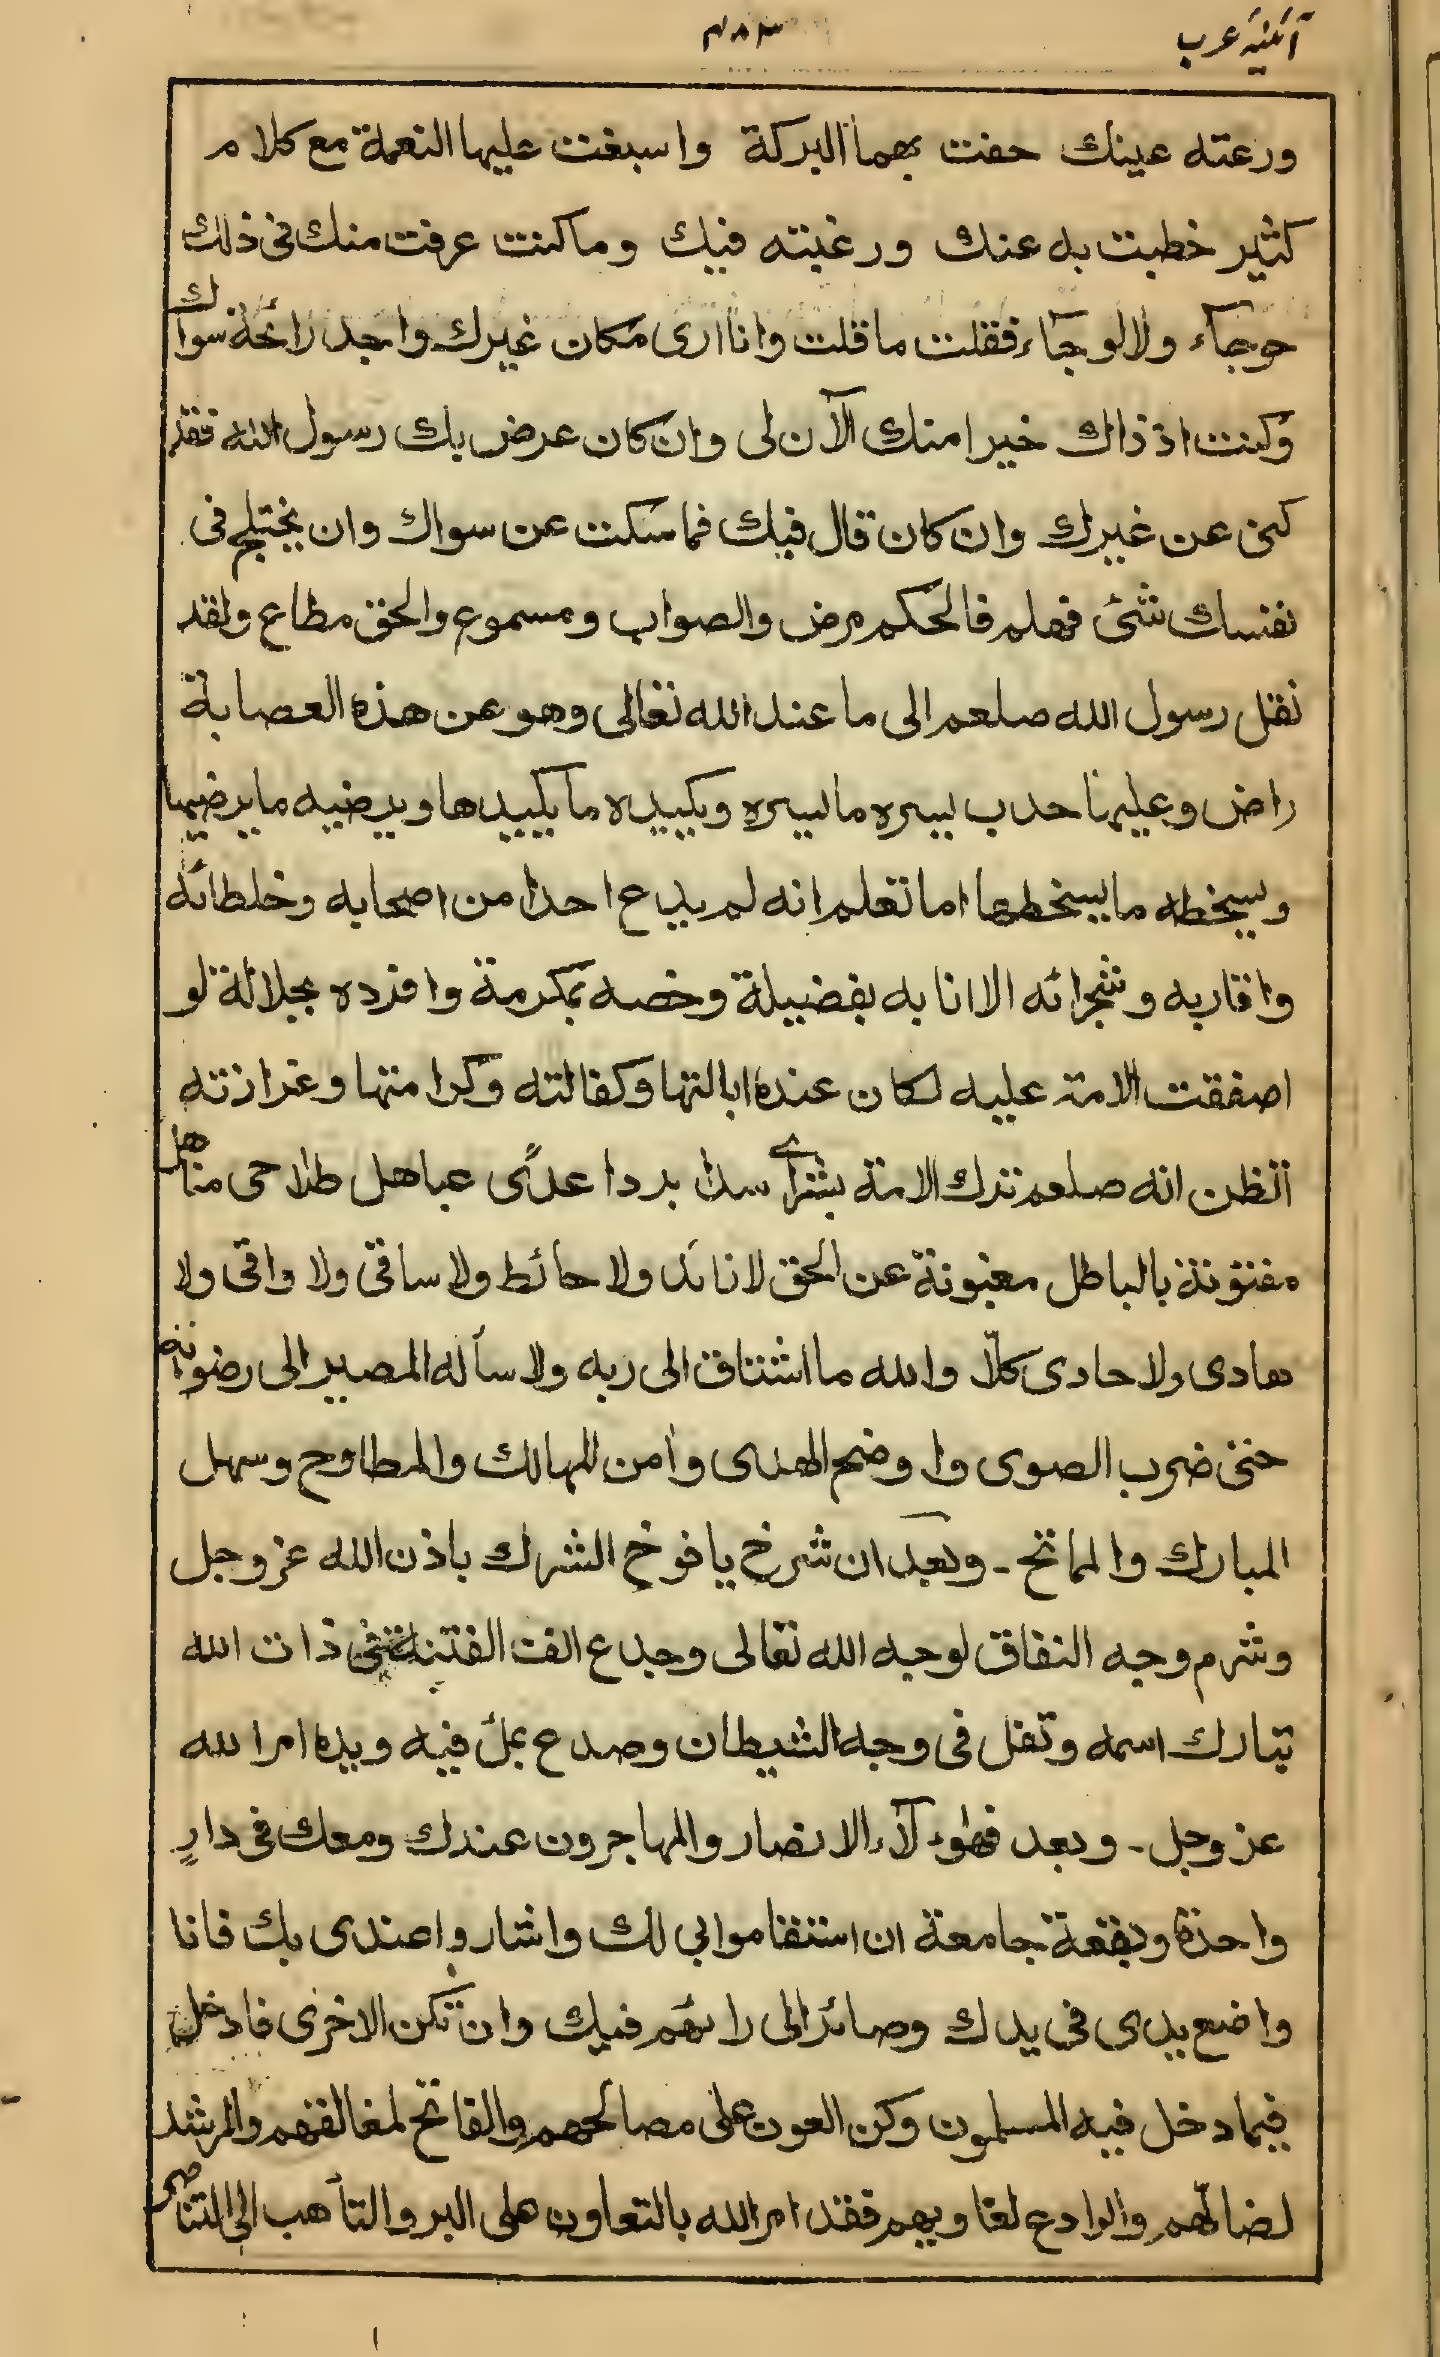 آئینۂ عرب ۴۸۳
ورعته عينك حفت بهما البركة واسبغت عليها النعمة مع كلام
كثير خطبت به عنك ورغبته فيك وما كنت عرفت منك فى ذلك
حوجآء ولا لوجآء فقلت ما قلت وانا ارى مكان غيرك واجد رائحة سواك
وكنت اذ ذاك خيرا منك الآن لى وان كان عرض بك رسول الله فقد
كنى عن غيرك وان كان قال فيك فما سكت عن سواك وان يختلج فى
نفسك شئ فهلم فالحكم مرض والصواب ومسموع والحق مطاع ولقد
نقل رسول الله صلعم الى ما عند الله تعالى وهو عن هذه العصابة
راض وعليها حدب يسره ما يسره ويكيده ما يكيدها ويرضيه ما يرضيها
ويسخطه ما يسخطها اما تعلم انه لم يدع احدا من اصحابه وخلطائه
واقاربه وشجرائه الا انا به بفضيلة وخصه بمكرمة وافرده بجلالة لو
اصفقت الامة عليه لكان عنده ايالتها وكفالته وكرامتها وغرازته
اتظن انه صلعم ترك الامة بشراے سدا بردا عدًى عباهل طلاحى مناهل
مفتونة بالباطل مغبونة عن الحق لا نائد ولا حائط ولا ساقى ولا واقى ولا
هادى ولا حادى كلّا والله ما اشتاق الى ربه ولا سأله المصير الى رضوانه
حتى ضرب الصوى واوضح الهدى وامن المهالك والمطاوح وسهل
المبارك والمماتح - وبعد ان شرخ يافوخ الشرك باذن الله عز وجل
وشرم وجه النفاق لوجه الله تعالى وجدع انف الفتنة فى ذات الله
تبارك اسمه وتفل فى وجه الشيطان وصدع بملٔ فيه ويده امر الله
عز وجل - وبعد فهٰؤلآء الانصار والمهاجرون عندك ومعك فى دارٍ
واحدة وبقعة جامعة ان استقاموا بى لك واشاروا عندى بك فانا
واضع يدى فى يدك وصائر الى رائهم فيك وان تكن الاخرى فادخل
فيما دخل فيه المسلمون وكن العون على مصالحهم والفاتح لمغالقهم والمرشد
لضالّهم والوادع لغاويهم فقد امر الله بالتعاون على البر والتأهب الى التناصر